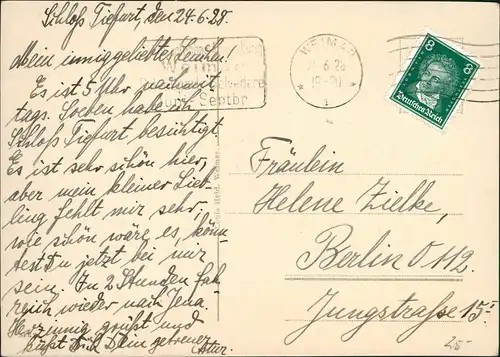 Schloß Tiefurt, den 24.6.28.
Mein inniggeliebtes Lenchen!
Es ist 5 Uhr nachmit
tags. Soeben habe ich
Schloß Tiefurt besichtigt.
Es ist sehr schön hier,
aber mein kleiner Lieb-
ling fehlt mir sehr,
wie schön wäre es, könn-
test Du jetzt bei mir
sein. In 2 Stunden fah-
re ich wieder nach Jena.
Herzinnig grüßt und
küßt Dich Dein getreuer
Artur.
WEIMAR
6.28
Septbr
8 8
Deutsches Reich
Held, Weimar.
Fräulein
Helene Zielke,
Berlin O 112.
Jungstraße 15I.